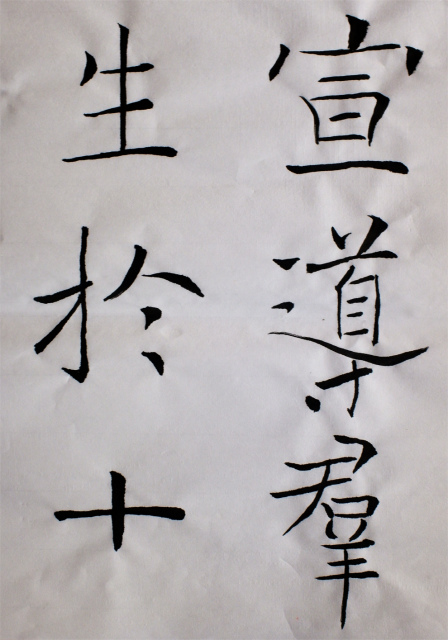 宣導羣
生於十